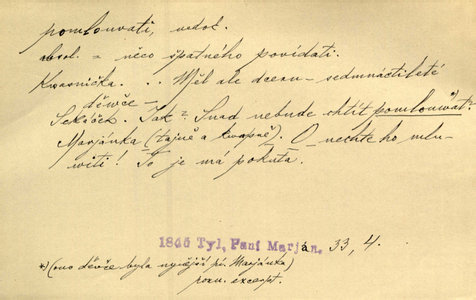 pomlouvati, nedok.
absol. = něco špatného povídati.
Kvasnička. .. Měl ale dceru – sedmnáctileté
děvče –
Sekáček. Tak? Snad nebude chtít pomlouvat?
Marjánka (tajně a kvapně). O – nechte ho mlu-
viti! To je má pokuta.
1845 Tyl, Paní Marján, 33, 4.
*) (ono děvče byla nynější pí. Marjánka)
pozn. excerpt.